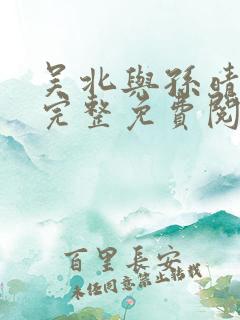 吴北與孫晴
完整免費閱
百里長安
未经同意禁止转载